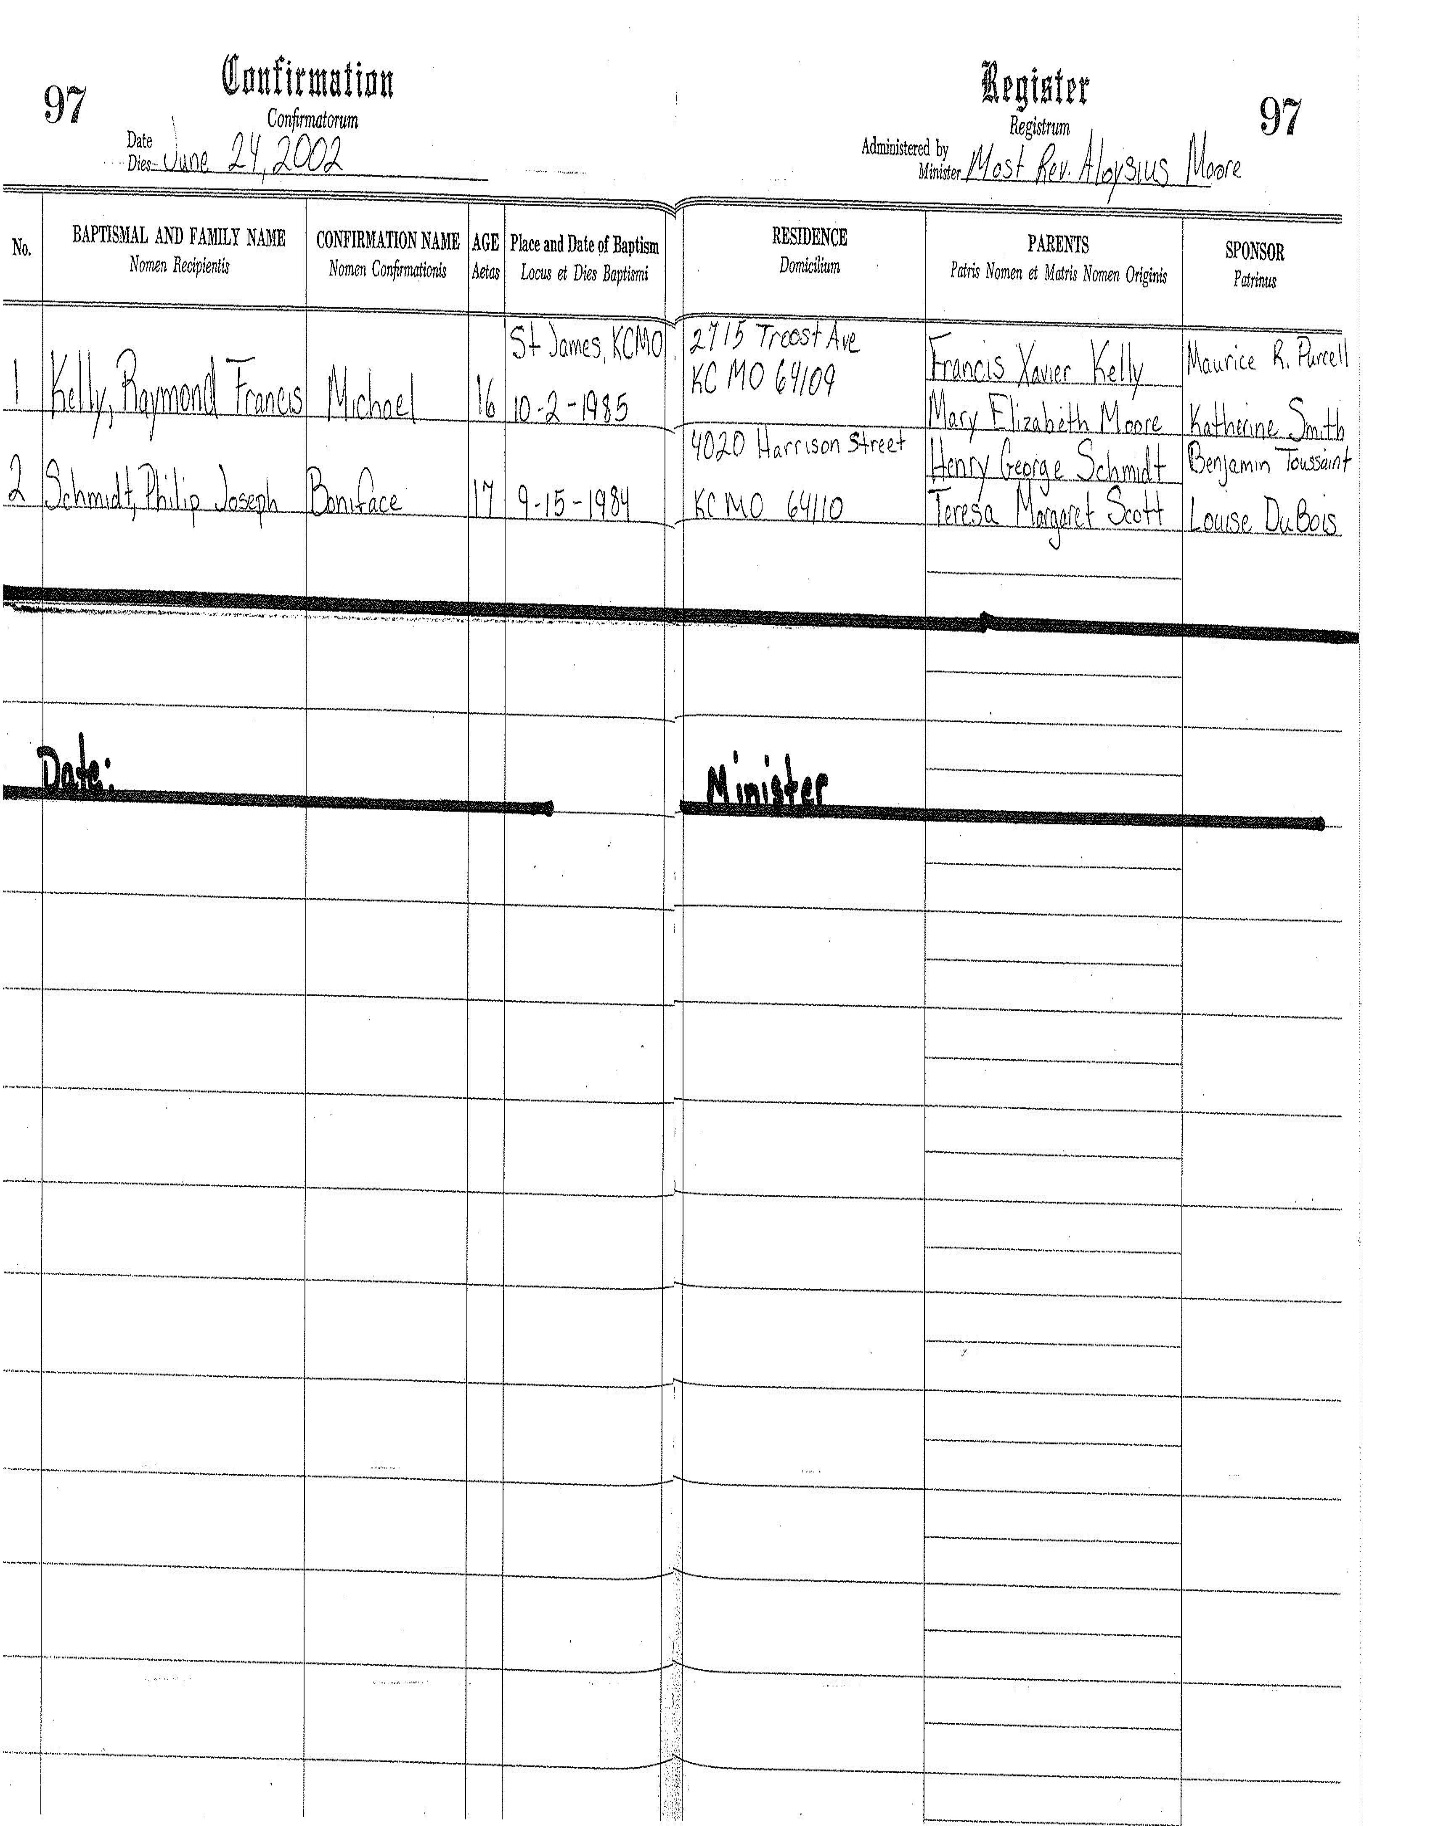 97
Confirmation
Confirmatorum
Date
Dies June 24, 2002
Register
Registrum
97
Administered by
Minister Most Rev. Aloysius Moore
No.
BAPTISMAL AND FAMILY NAME
Nomen Recipientis
CONFIRMATION NAME
Nomen Confirmationis
AGE
Aetas
Place and Date of Baptism
Locus et Dies Baptismi
RESIDENCE
Domicilium
PARENTS
Patris Nomen et Matris Nomen Originis
SPONSOR
Patrinus
1 Kelly, Raymond Francis Michael 16
St James, KCMO
10-2-1985
2715 Troost Ave
KC MO 64109
Francis Xavier Kelly
Mary Elizabeth Moore
Maurice R. Purcell
Katherine Smith
2 Schmidt, Philip Joseph Boniface 17 9-15-1984
4020 Harrison Street
KC MO 64110
Henry George Schmidt
Teresa Margaret Scott
Benjamin Toussaint
Louise DuBois
Date:
Minister